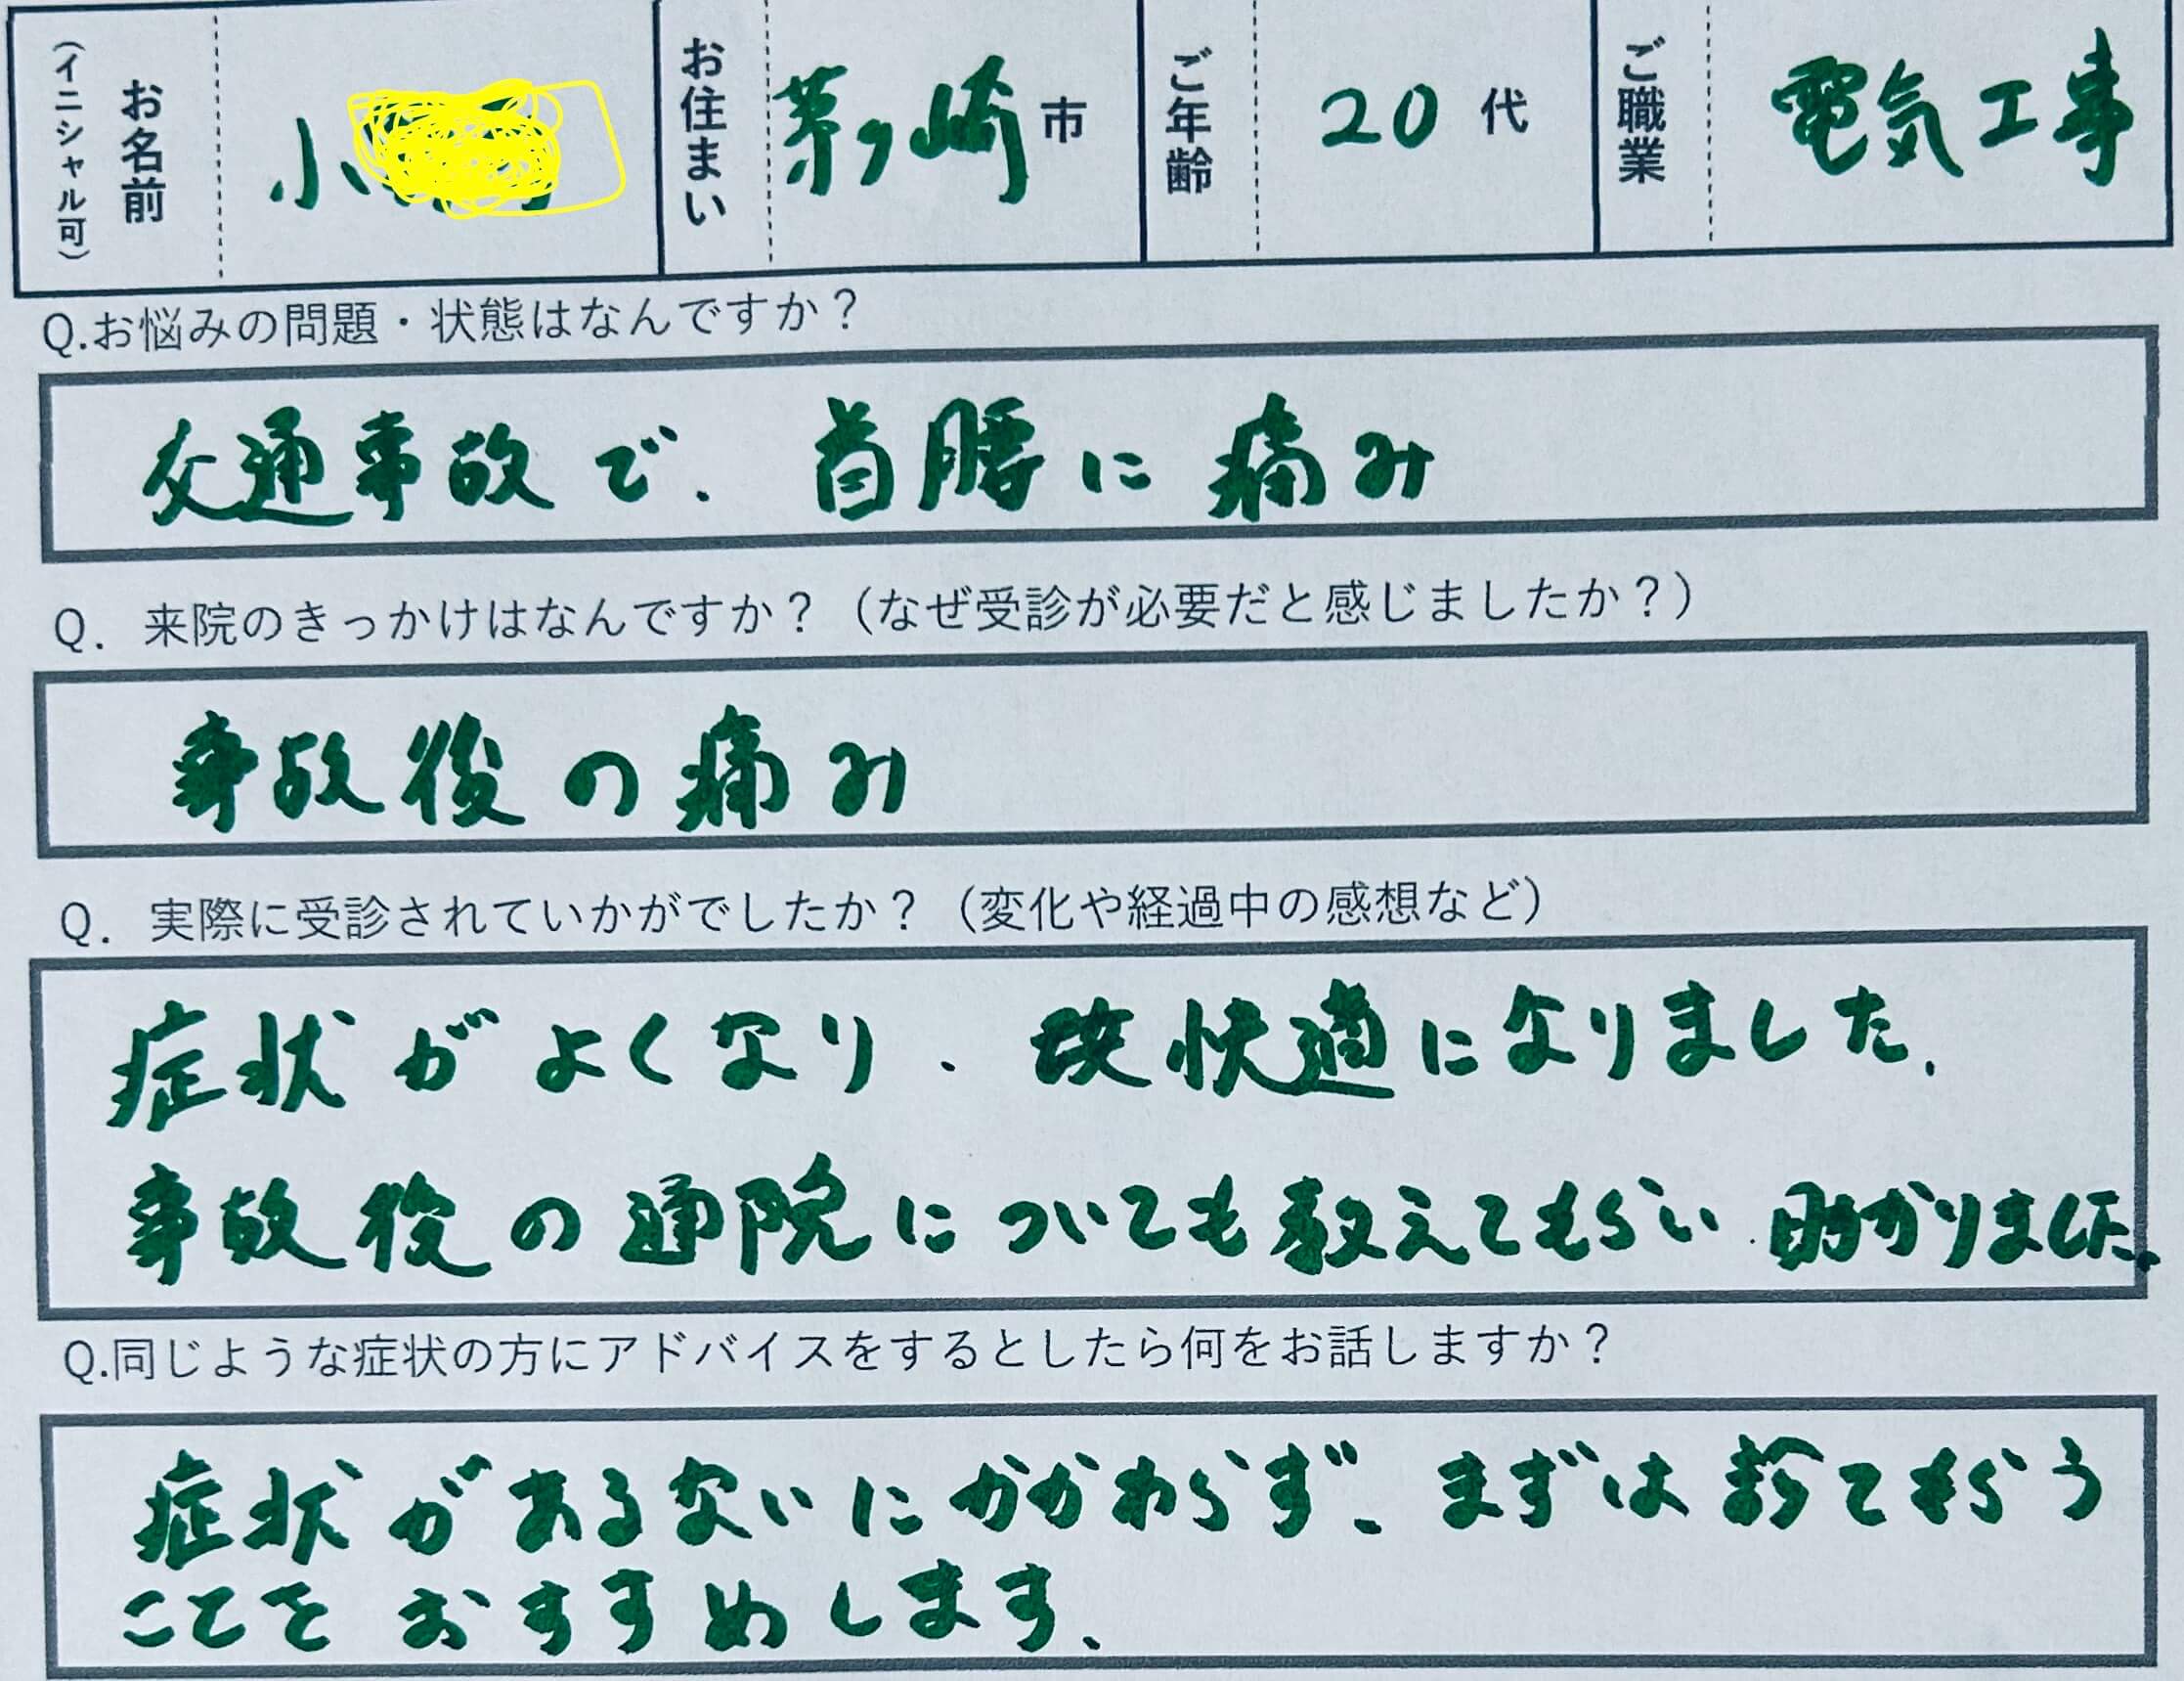 お名前
（イニシャル可）
小
お住まい
茅ヶ崎市
ご年齢
20代
ご職業
電気工事
Q.お悩みの問題・状態はなんですか？
交通事故で、首腰に痛み
Q. 来院のきっかけはなんですか？（なぜ受診が必要だと感じましたか？）
事故後の痛み
Q. 実際に受診されていかがでしたか？（変化や経過中の感想など）
症状がよくなり、快適になりました。
事故後の通院についても教えてもらい助かりました。
Q.同じような症状の方にアドバイスをするとしたら何をお話しますか？
症状があるないにかかわらず、まずは診てもらう
ことをおすすめします。